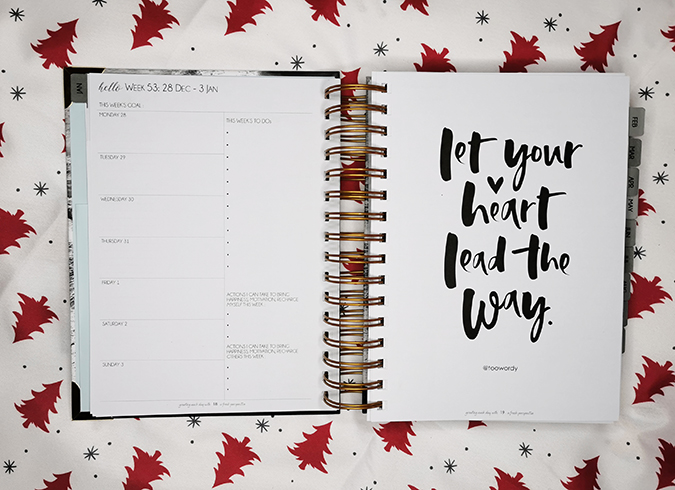 JAN
hello WEEK 53: 28 DEC - 3 JAN
THIS WEEK'S GOAL:
MONDAY 28
TUESDAY 29
WEDNESDAY 30
THURSDAY 31
FRIDAY 1
SATURDAY 2
SUNDAY 3
THIS WEEK'S TO DO:
ACTIONS I CAN TAKE TO BRING
HAPPINESS, MOTIVATION, RECHARGE
MYSELF THIS WEEK:
ACTIONS I CAN TAKE TO BRING
HAPPINESS, MOTIVATION, RECHARGE
OTHERS THIS WEEK:
let your
heart
lead the
way.
@toowordy
FEB
MAR
APR
MAY